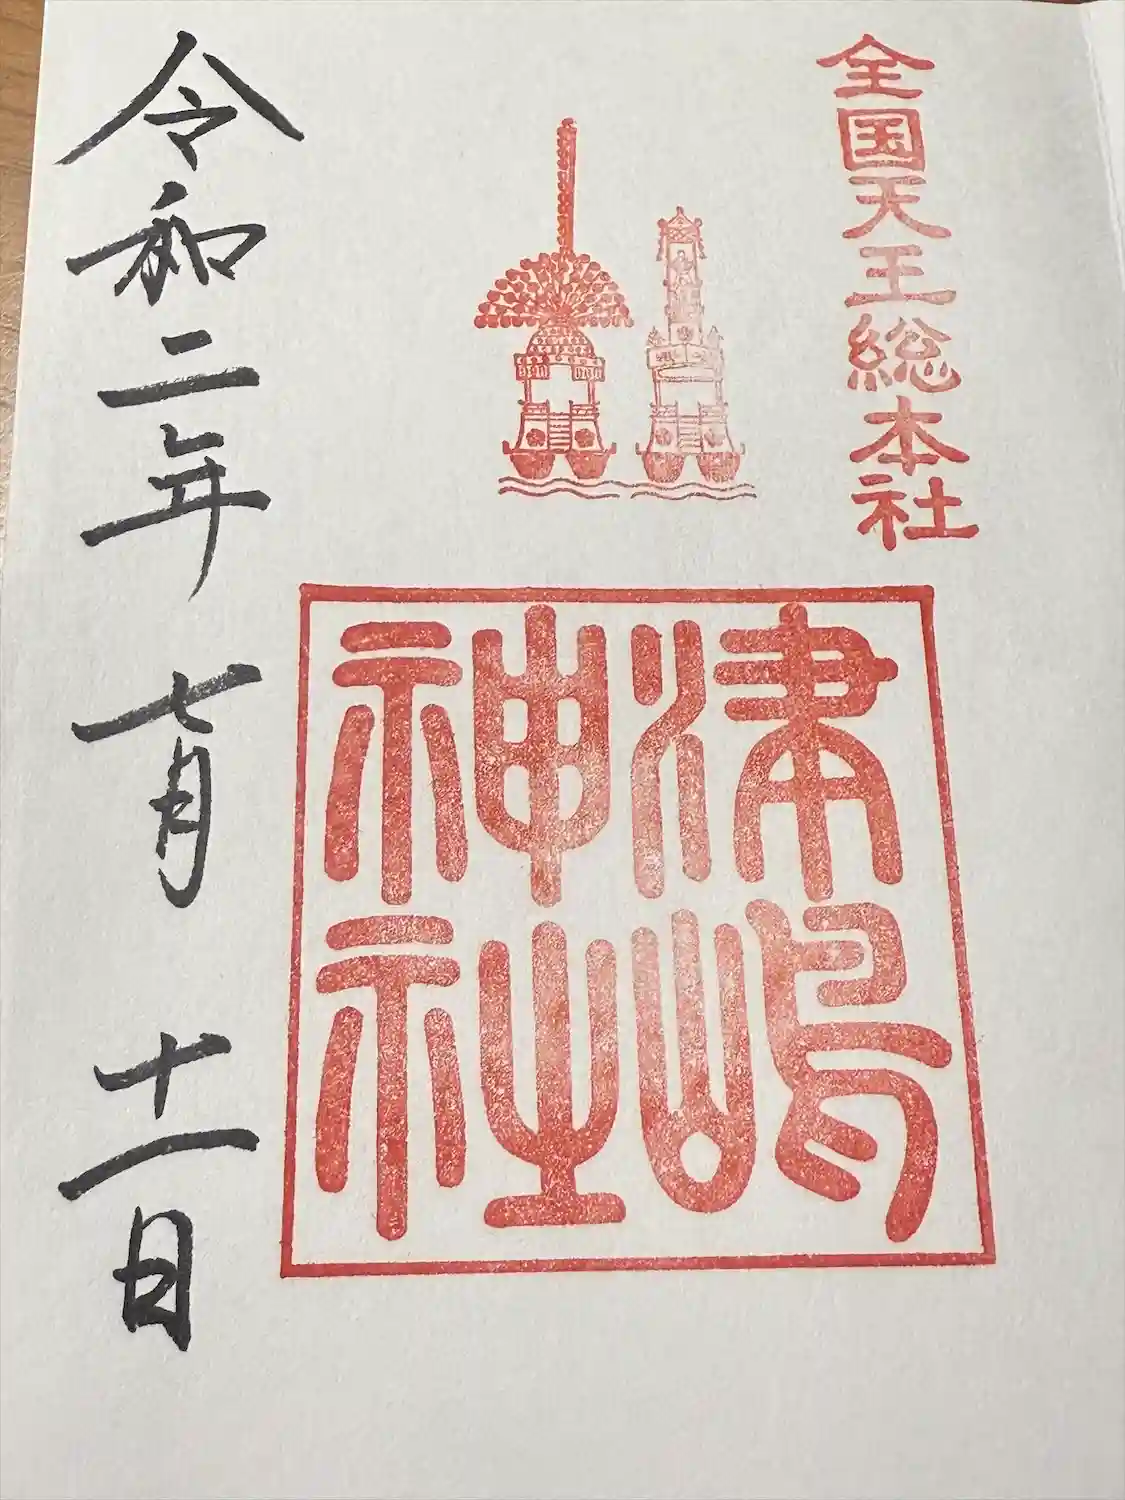 全国天王総本社
津嶋
神社
令和二年七月十一日